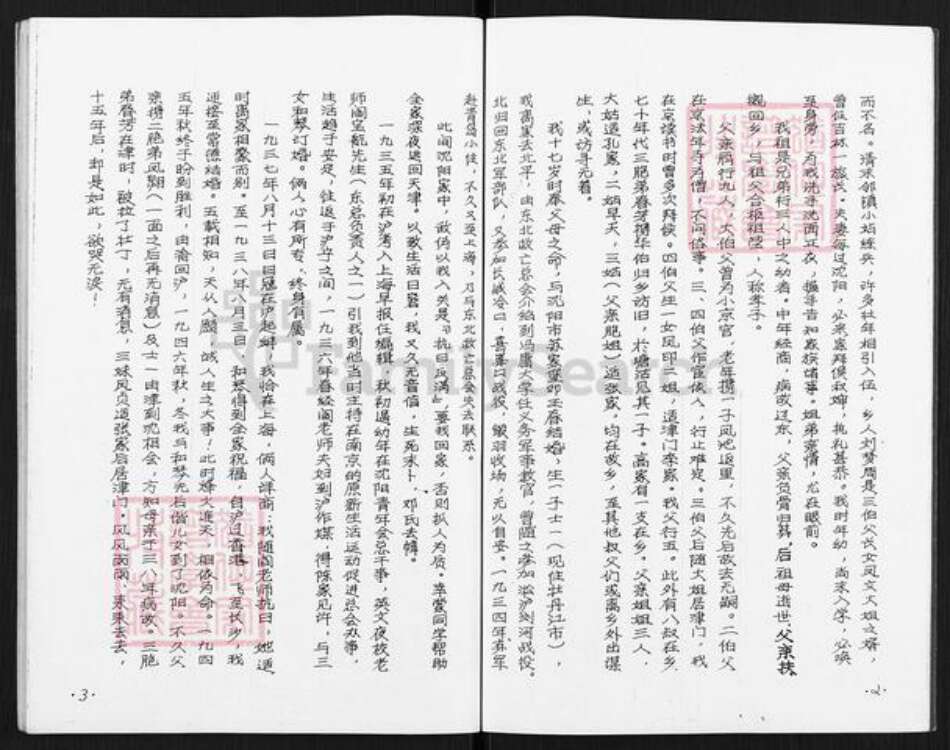 而不名。清末邻镇小站练兵，许多壮年相引入伍，乡人刘梦周是三伯父长女凤文大姐之婿，
曾任百林一旅长。夫妻每过沈阳，必来寒舍拜候叔婶，执礼甚恭。我时年幼，尚未入学，必唤
至身旁，为我洗手洗面正衣，抚手告知家族诸事。姐弟亲情，尤在眼前。
我祖是兄弟行三人中之幼者。中年经商，病故辽东，父亲负骨归葬。后祖母逝世，父亲扶
榇回乡，与祖父合柩祖茔，人称孝子。
父亲胞行九人，大伯父曾为小京官，老年携一子凤池返里，不久先后故去无嗣。二伯父
在京法年寺为僧，不问俗事。三、四伯父作官依人，行止难定。三伯父后随大姐居津门，我
在京读书时曾多次拜候。四伯父生一女凤印二姐，适津门李家。我父行五。此外有八叔在乡，
七十年代三胞弟春芳携华伯归乡访旧，于塘沽见其一子。高家有一支在乡。父亲姐姐三人，
大姑适孔家，二姑早夭，三姑（父亲胞姐）适张家，均在故乡，至其他叔父们或离乡外出谋
生，或访寻无着。
我十七岁时奉父母之命，与沈阳市苏家屯邓玉春结婚，生一子士一（现住牡丹江市），
我离家去北平，由东北救亡总会介绍到冯庸大学任义务军事教官，曾随之参加淞沪浏河战役。
北归回东北军部队，又参加长城冷口，喜峰口战役，铩羽收场，无以自安。一九三四年弃军
赴青岛小住，不久又至上海，乃与东北救亡总会失去联系。
此间沈阳家中，敌伪以我入关是『抗日反满』，要我回家，否则扒人为质。幸赏同学帮助
全家深夜逃回天津。以致生活日窘，我又久无音信，生死未卜，邓氏去帏。
一九三五年初在沪考入上海早报任编辑，秋初遇幼年在沈阳青年会总干事，英文夜校老
师阎宝航先生（东总负责人之一）引我到他当时主持在南京的原新生活运动促进总会办事，
生活趋于安定，往返于沪宁之间，一九三六年春经阎老师夫妇到沪作媒，得陈家见许，与三
女和琴订婚。俩人心有所专，终身有属。
一九三七年八月十三日日寇在沪起衅，我恰在上海，俩人洋商：我随阎老师抗日，她适
时离家相聚而别。至一九三八年八月三日，和琴得到全家祝福，自沪过香港，飞至长沙，我
迎接至常德结婚。五载相知，天从人愿，诚人生之大事！此时烽火连天，相依为命。一九四
五年秋终于盼到胜利，由渝回沪，一九四六年秋、冬我与和琴先后偕儿女到了沈阳。不久父
亲携二胞弟凤翔（一面之后再无消息）及士一由津到沈相会，方知母亲于三八年病故。三胞
弟春芳在津时，被拉了壮丁，无有消息，三妹凤贞适张家后居津门。风风雨雨，来来去去，
十五年后，却是如此，欲哭无泪！
·2·
·3·
FamilySearch